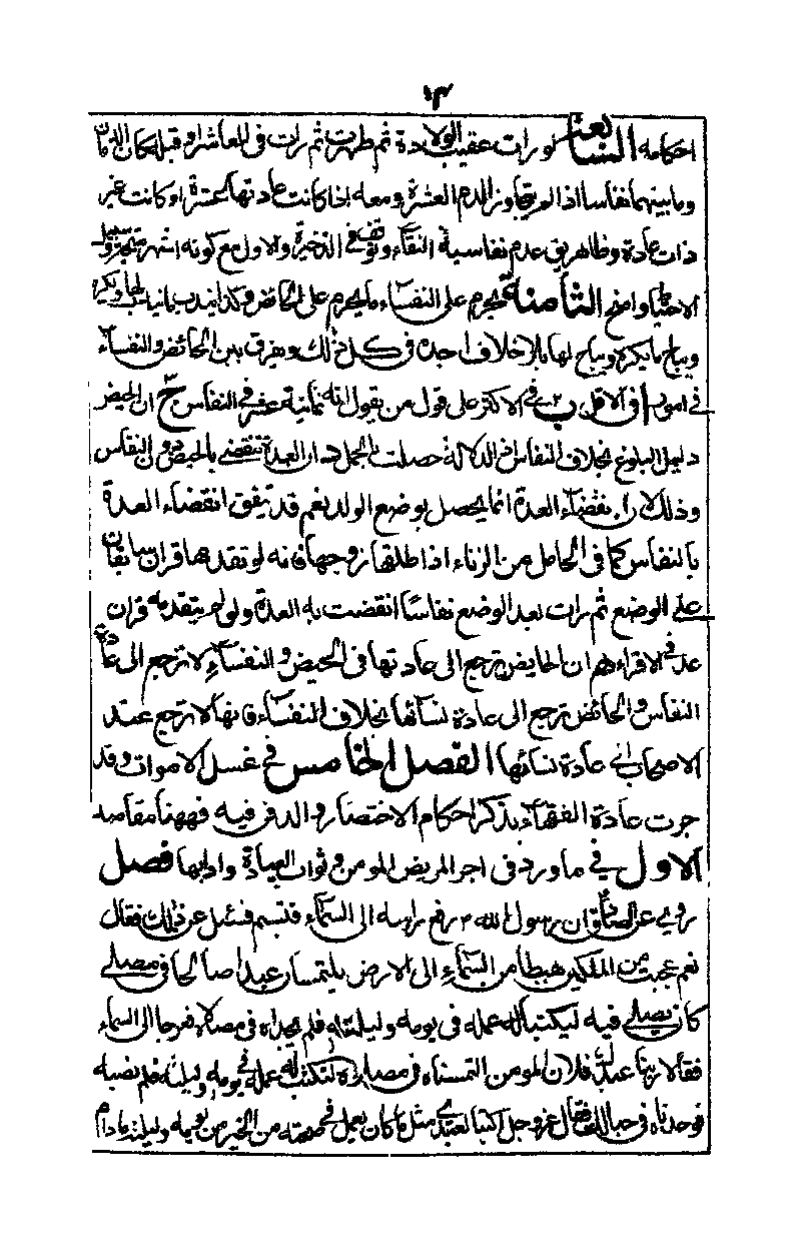 ١٣
احكامه السابعة لو رات عقيب الولادة ثم طهرت ثم رات في العاشر او قبله كان الدمان
وما بينهما نفاسا اذا لم يتجاوز الدم العشرة ومعه اذا كانت عادتها عشرة او كانت غير
ذات عادة وظاهر يق عدم نفاسية النقاء وتوقف في الذخيرة والاول مع كونه اشهر
الاحتياط واضح الثامنة يحرم على النفساء ما يحرم على الحائض وكذا يندب ما يندب لها ويكره
ويباح ما يكره ويباح لها بلا خلاف اجده في كل ذلك وهرق بين الحائض والنفساء
في امور ا في الاقل ب في الاكثر على قول من يقول انه ثمانية عشر في النفاس ج ان الحيض
دليل البلوغ بخلاف النفاس اذ الدلالة حصلت بالحمل د ان العدة تنقضي بالحيض دون النفاس
وذلك لان انقضاء العدة انما يحصل بوضع الولد نعم قد يتفق انقضاء العدة
بالنفاس كما في الحامل من الزناء اذا طلقها زوجها فانه لو تقدمها قران سابقان
على الوضع ثم رات بعد الوضع نفاسا انقضت به العدة ولو لم يتقدمه قران
عد في الاقراء ه ان الحايض ترجع الى عادتها في الحيض والنفساء لا ترجع الى عادة
النفاس و الحائض ترجع الى عادة نسائها بخلاف النفساء فانها لا ترجع عند
الاصحاب الى عادة نسائها الفصل الخامس في غسل الاموات وقد
جرت عادة الفقهاء بذكر احكام الاحتضار والدفن فيه فههنا مقاصد
الاول في ما ورد في اجر المريض المومن وثواب العيادة وادابها فصل
روي عن الصادق ان رسول الله ص رفع راسه الى السماء فتبسم فسئل عن ذلك فقال
نعم عجبت من الملكين هبطا من السماء الى الارض يلتمسان عبدا صالحا في مصلى
كان يصلي فيه ليكتبا له عمله في يومه وليلته فلم يجداه في مصلاه فعرجا الى السماء
فقالا ربنا عبدك فلان المومن التمسناه في مصلاه لنكتب له عمله في يومه وليلته فلم نصبه
فوجدناه في حبالك فقال عز وجل اكتبا لعبدي مثل ما كان يعمل في صحته من الخير من يومه وليلته مادام